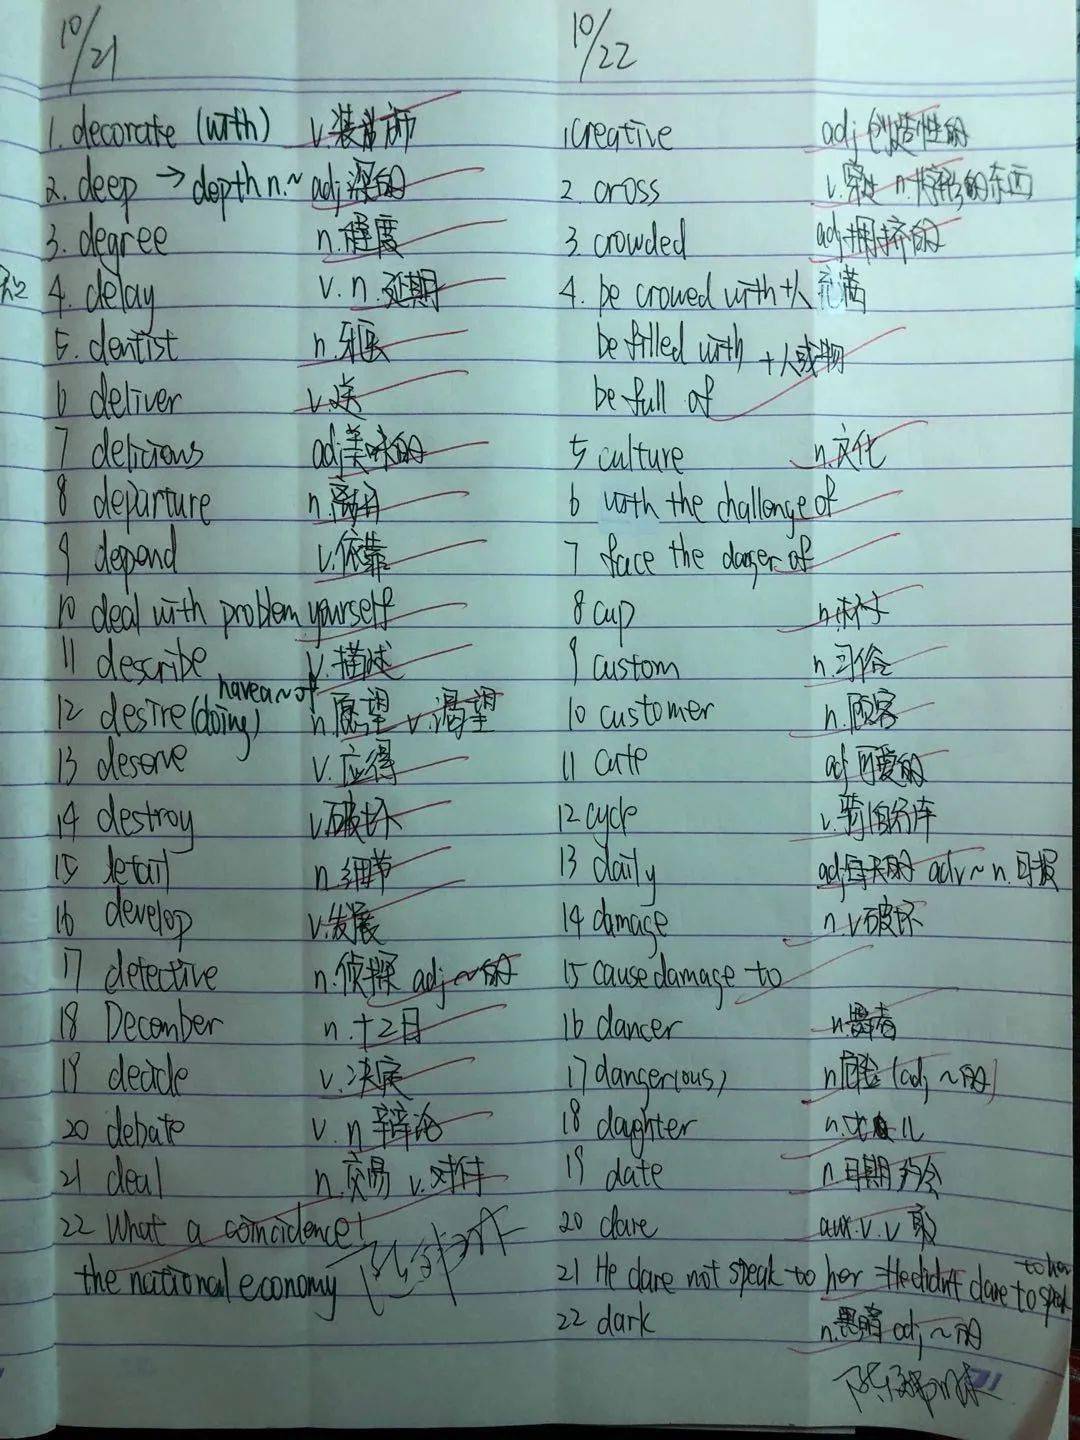 10/21
1. decorate (with) v.装饰
2. deep → depth n.~ adj深的
3. degree n.程度
4. delay v. n.延期
5. dentist n.牙医
6 deliver v.送
7 delicious adj美味的
8 departure n.离开
9 depend v.依靠
10 deal with problem yourself
11 describe v.描述
have a ~ of
12 desire (doing) n.愿望 v.渴望
13 deserve v.应得
14 destroy v.破坏
15 detail n.细节
16 develop v.发展
17 detective n.侦探 adj ~的
18 December n.十二月
19 decide v.决定
20 debate v. n 辩论
21 deal n.交易 v.对付
22 What a coincidence!
the national economy
10/22
1 creative adj 创造性的
2. cross v.穿过 n.十字形的东西
3. crowded adj.拥挤的
4. be crowed with + 人 充满
be filled with + 人或物
be full of
5 culture n.文化
6 with the challenge of
7 face the danger of
8 cup n.杯子
9 custom n.习俗
10 customer n.顾客
11 cute adj 可爱的
12 cycle v.骑自行车
13 daily adj每天的 adv ~ n.日报
14 damage n v破坏
15 cause damage to
16 dancer n舞者
17 danger(ous) n危险 (adj ~的)
18 daughter n.女儿
19 date n日期 约会
20 dare aux.v. v 敢
21 He dare not speak to her =He didn't dare to speak to her
22 dark n.黑暗 adj ~的